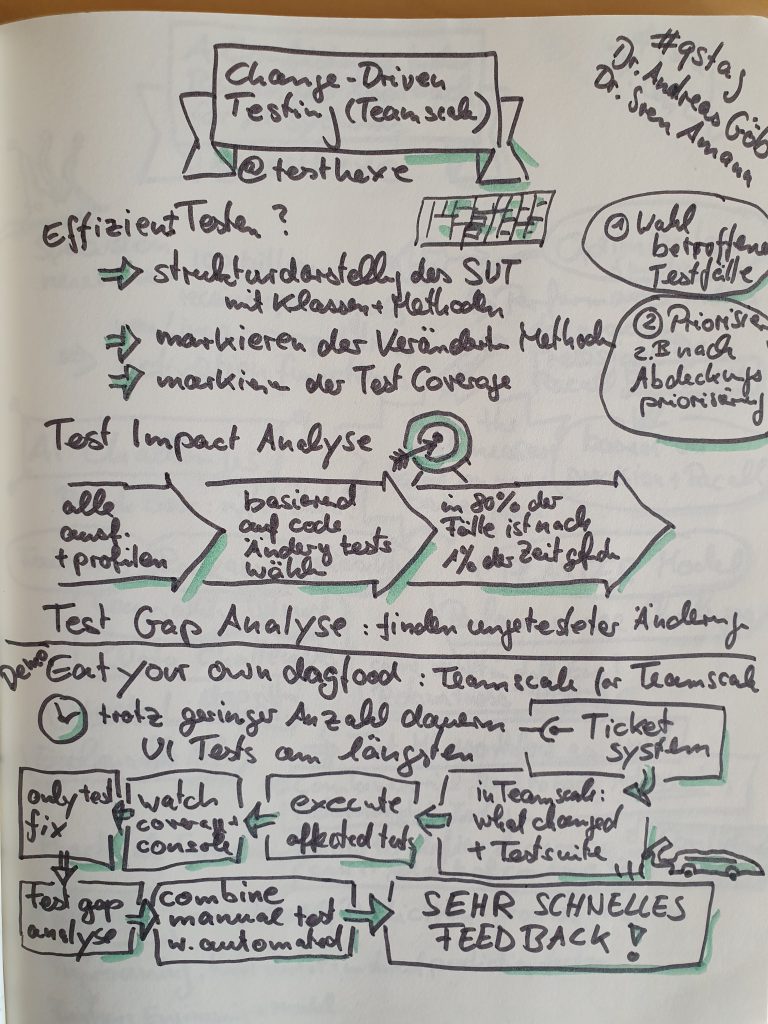 Change-Driven
Testing (Teamscale)
@testhexe
#qstag
Dr. Andreas Göb
Dr. Sven Amann
Effizient Testen?
strukturdarstellg des SUT
mit Klassen + Methoden
markieren der Veränderten Methoden
markieren der Test Coverage
① Wahl
betroffene
Testfälle
② Priorisier
z.B nach
Abdeckungs
priorisierung
Test Impact Analyse
alle
ausf.
+ profilen
basierend
auf code
Änderg tests
wählen
in 80% der
Fälle ist nach
1% der Zeit
Test Gap Analyse: finden ungetesteter Änderung
Demo
Eat your own dogfood: Teamscale for Teamscale
trotz geringer Anzahl dauern
UI Tests am längsten
Ticket
system
in Teamscale:
what changed
+ Testsuite
execute
affected tests
watch
coverage +
console
only test
fix
test gap
analyse
combine
manual test
w. automated
SEHR SCHNELLES
FEEDBACK!